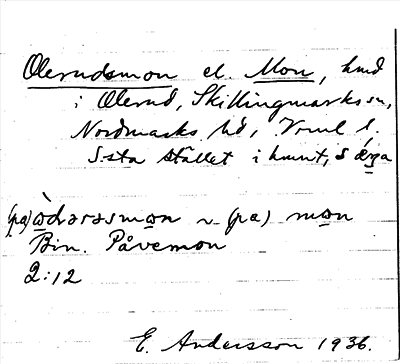 Olerudsmon el. Mon, hmd
i Olerud, Skillingmarks sn,
Nordmarks hd, Vrml l.
S-sta stället i hmnt, s ärga
(pa) òdrərəsmon ~ (pa) mon
Bin. Påvemon
2:12
E. Andersson 1936.